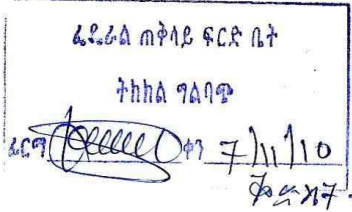 ፌዴራል ጠቅላይ ፍርድ ቤት
ትክክል ግልባጭ
ፊርማ ቀን 7/11/10